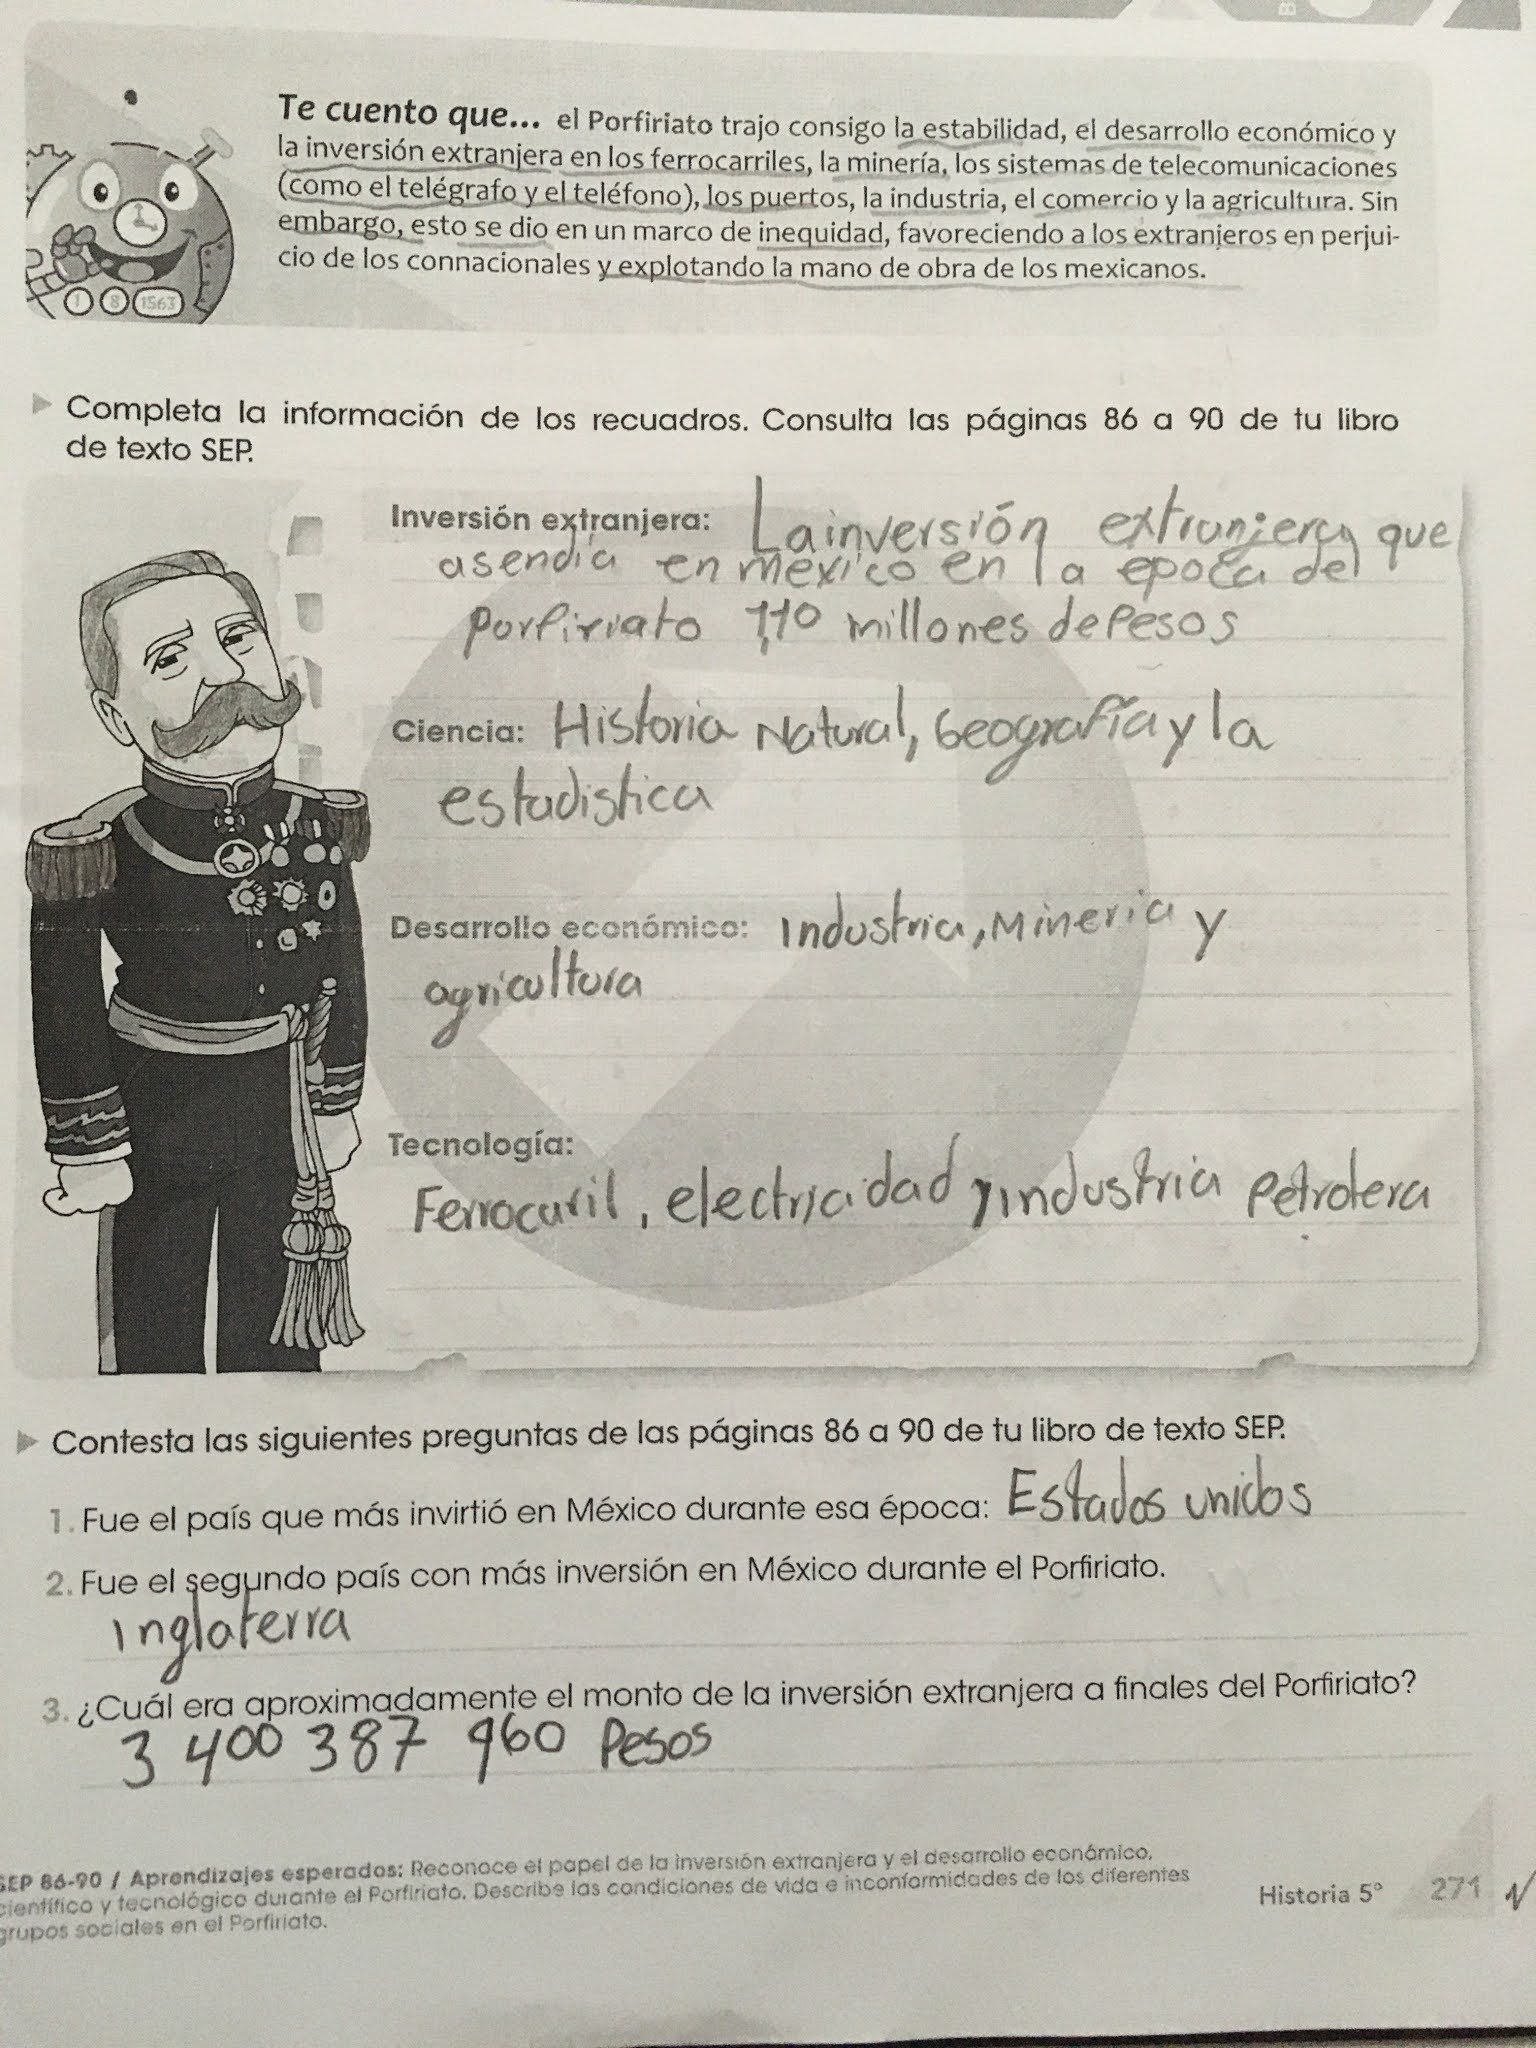 Te cuento que... el Porfiriato trajo consigo la estabilidad, el desarrollo económico y
la inversión extranjera en los ferrocarriles, la minería, los sistemas de telecomunicaciones
(como el telégrafo y el teléfono), los puertos, la industria, el comercio y la agricultura. Sin
embargo, esto se dio en un marco de inequidad, favoreciendo a los extranjeros en perjui-
cio de los connacionales y explotando la mano de obra de los mexicanos.
1 8 1563
Completa la información de los recuadros. Consulta las páginas 86 a 90 de tu libro
de texto SEP.
Inversión extranjera: La inversión extranjera que
asendia en mexico en la epoca del
porfiriato millones de pesos
Ciencia: Historia Natural, Geografía y la
estadistica
Desarrollo económico: industria, Mineria y
agricultura
Tecnología:
Ferrocarril, electricidad y industria Petrolera
Contesta las siguientes preguntas de las páginas 86 a 90 de tu libro de texto SEP.
1. Fue el país que más invirtió en México durante esa época: Estados unidos
2. Fue el segundo país con más inversión en México durante el Porfiriato.
inglaterra
3. ¿Cuál era aproximadamente el monto de la inversión extranjera a finales del Porfiriato?
3 400 387 960 Pesos
SEP 86-90 / Aprendizajes esperados: Reconoce el papel de la inversión extranjera y el desarrollo económico,
científico y tecnológico durante el Porfiriato. Describe las condiciones de vida e inconformidades de los diferentes
grupos sociales en el Porfiriato.
Historia 5° 271